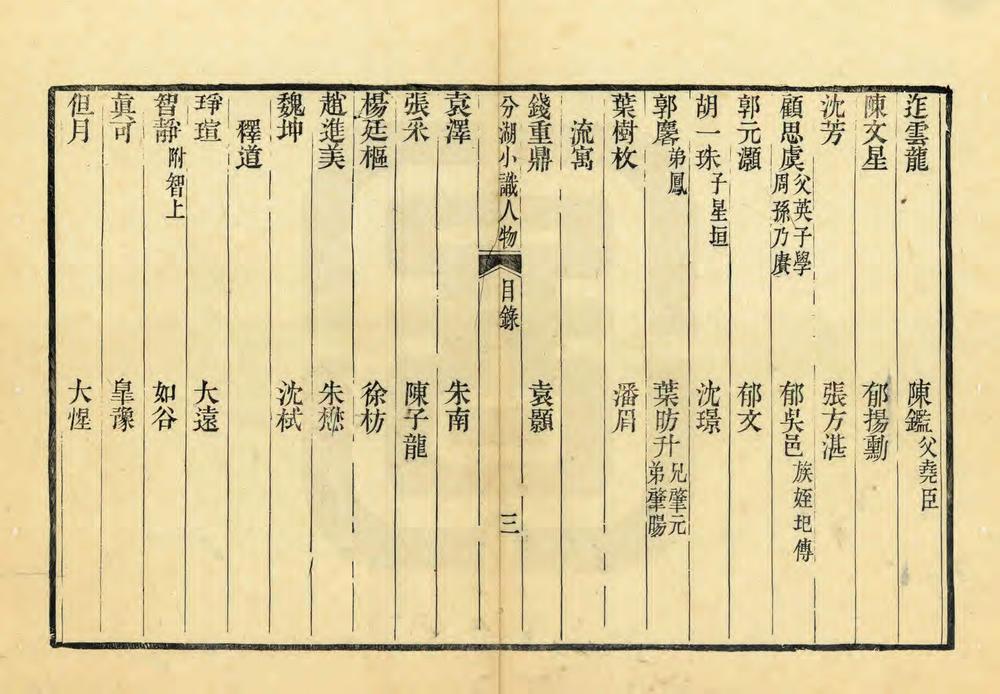 迮雲龍 陳鑑父堯臣
陳文星 郁揚勳
沈芳 張方湛
顧思虞父英子學周孫乃賡 郁吳邑族姪圯傳
郭元灝 郁文
胡一珠子星垣 沈璟
郭麐弟鳳 葉昉升兄肇元弟肇暘
葉樹枚 潘眉
流寓
錢重鼎 袁顥
分湖小識人物 目錄 三
袁澤 朱南
張采 陳子龍
楊廷樞 徐枋
趙進美 朱懋
魏坤 沈栻
釋道
琤瑄 大遠
智靜附智上 如谷
眞可 臯豫
但月 大惺